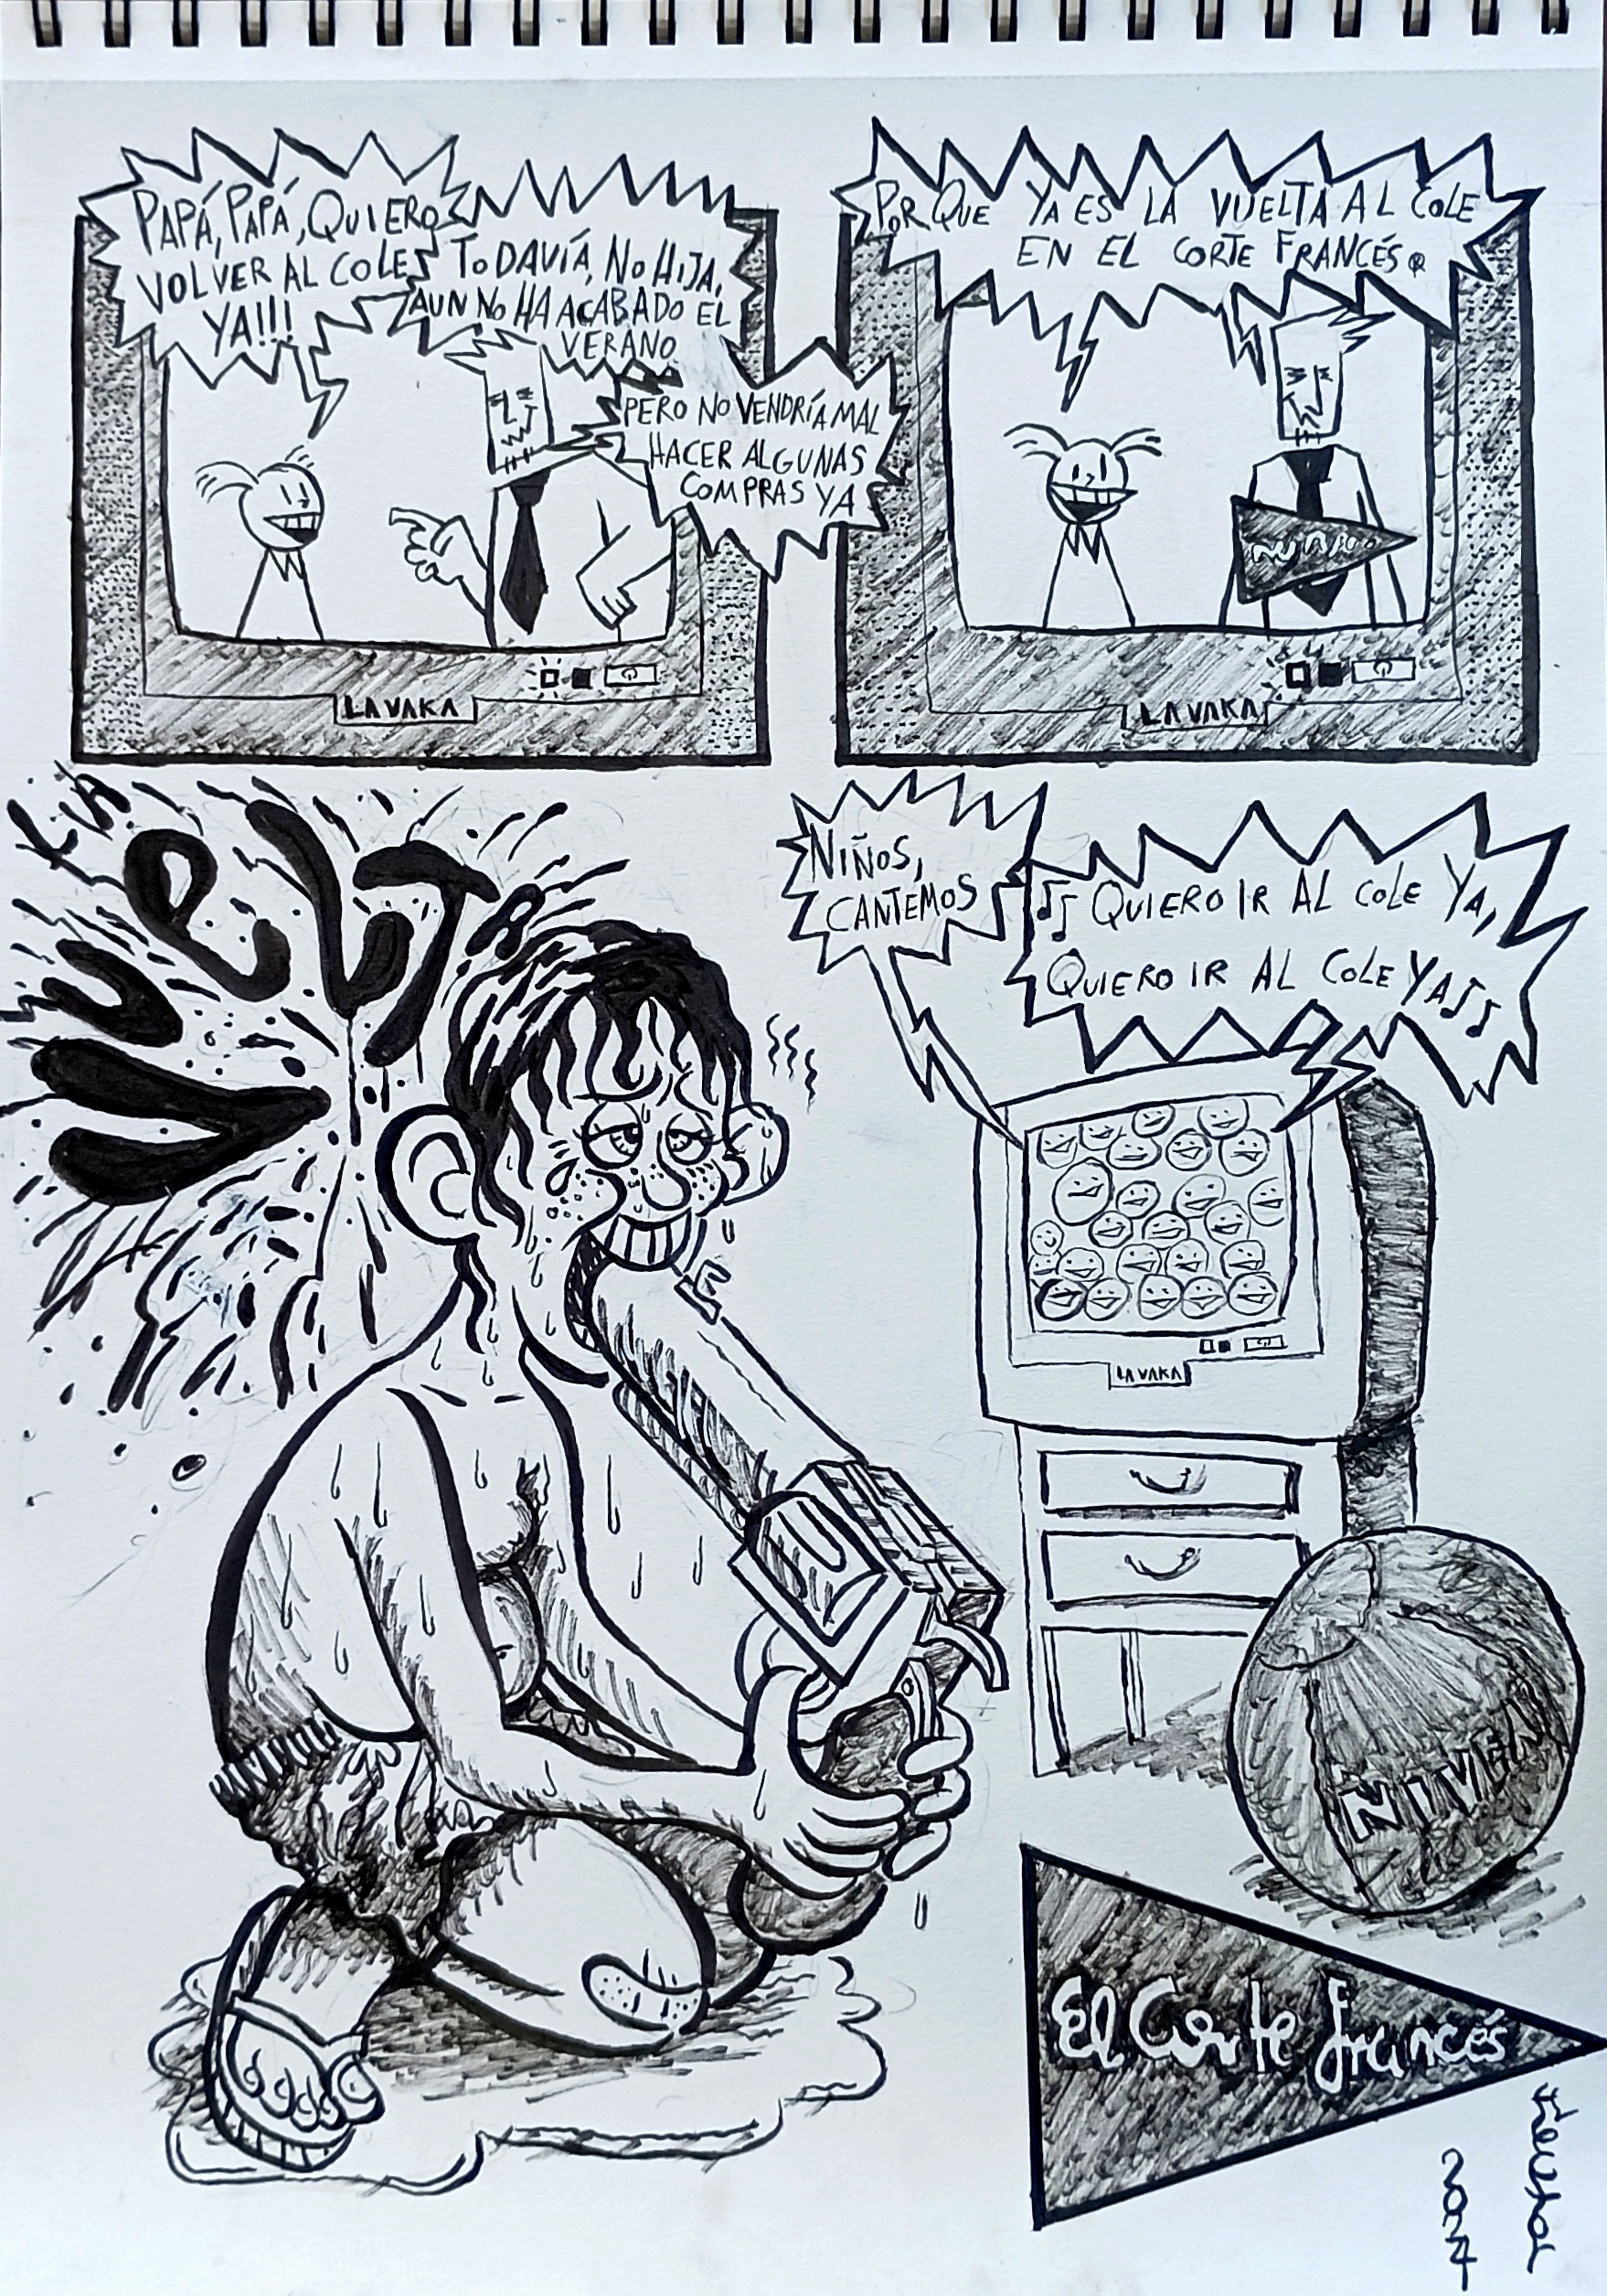 PAPÁ, PAPÁ, QUIERO
VOLVER AL COLE
YA!!!
TODAVÍA, NO HIJA,
AUN NO HA ACABADO EL
VERANO
PERO NO VENDRÍA MAL
HACER ALGUNAS
COMPRAS YA
LAVAKA
POR QUE YA ES LA VUELTA AL COLE
EN EL CORTE FRANCÉS ®
LAVAKA
LA
VUELTA
NIÑOS,
CANTEMOS
♫ QUIERO IR AL COLE YA,
QUIERO IR AL COLE YA ♫
LAVAKA
ÑIVEN
El Corte francés